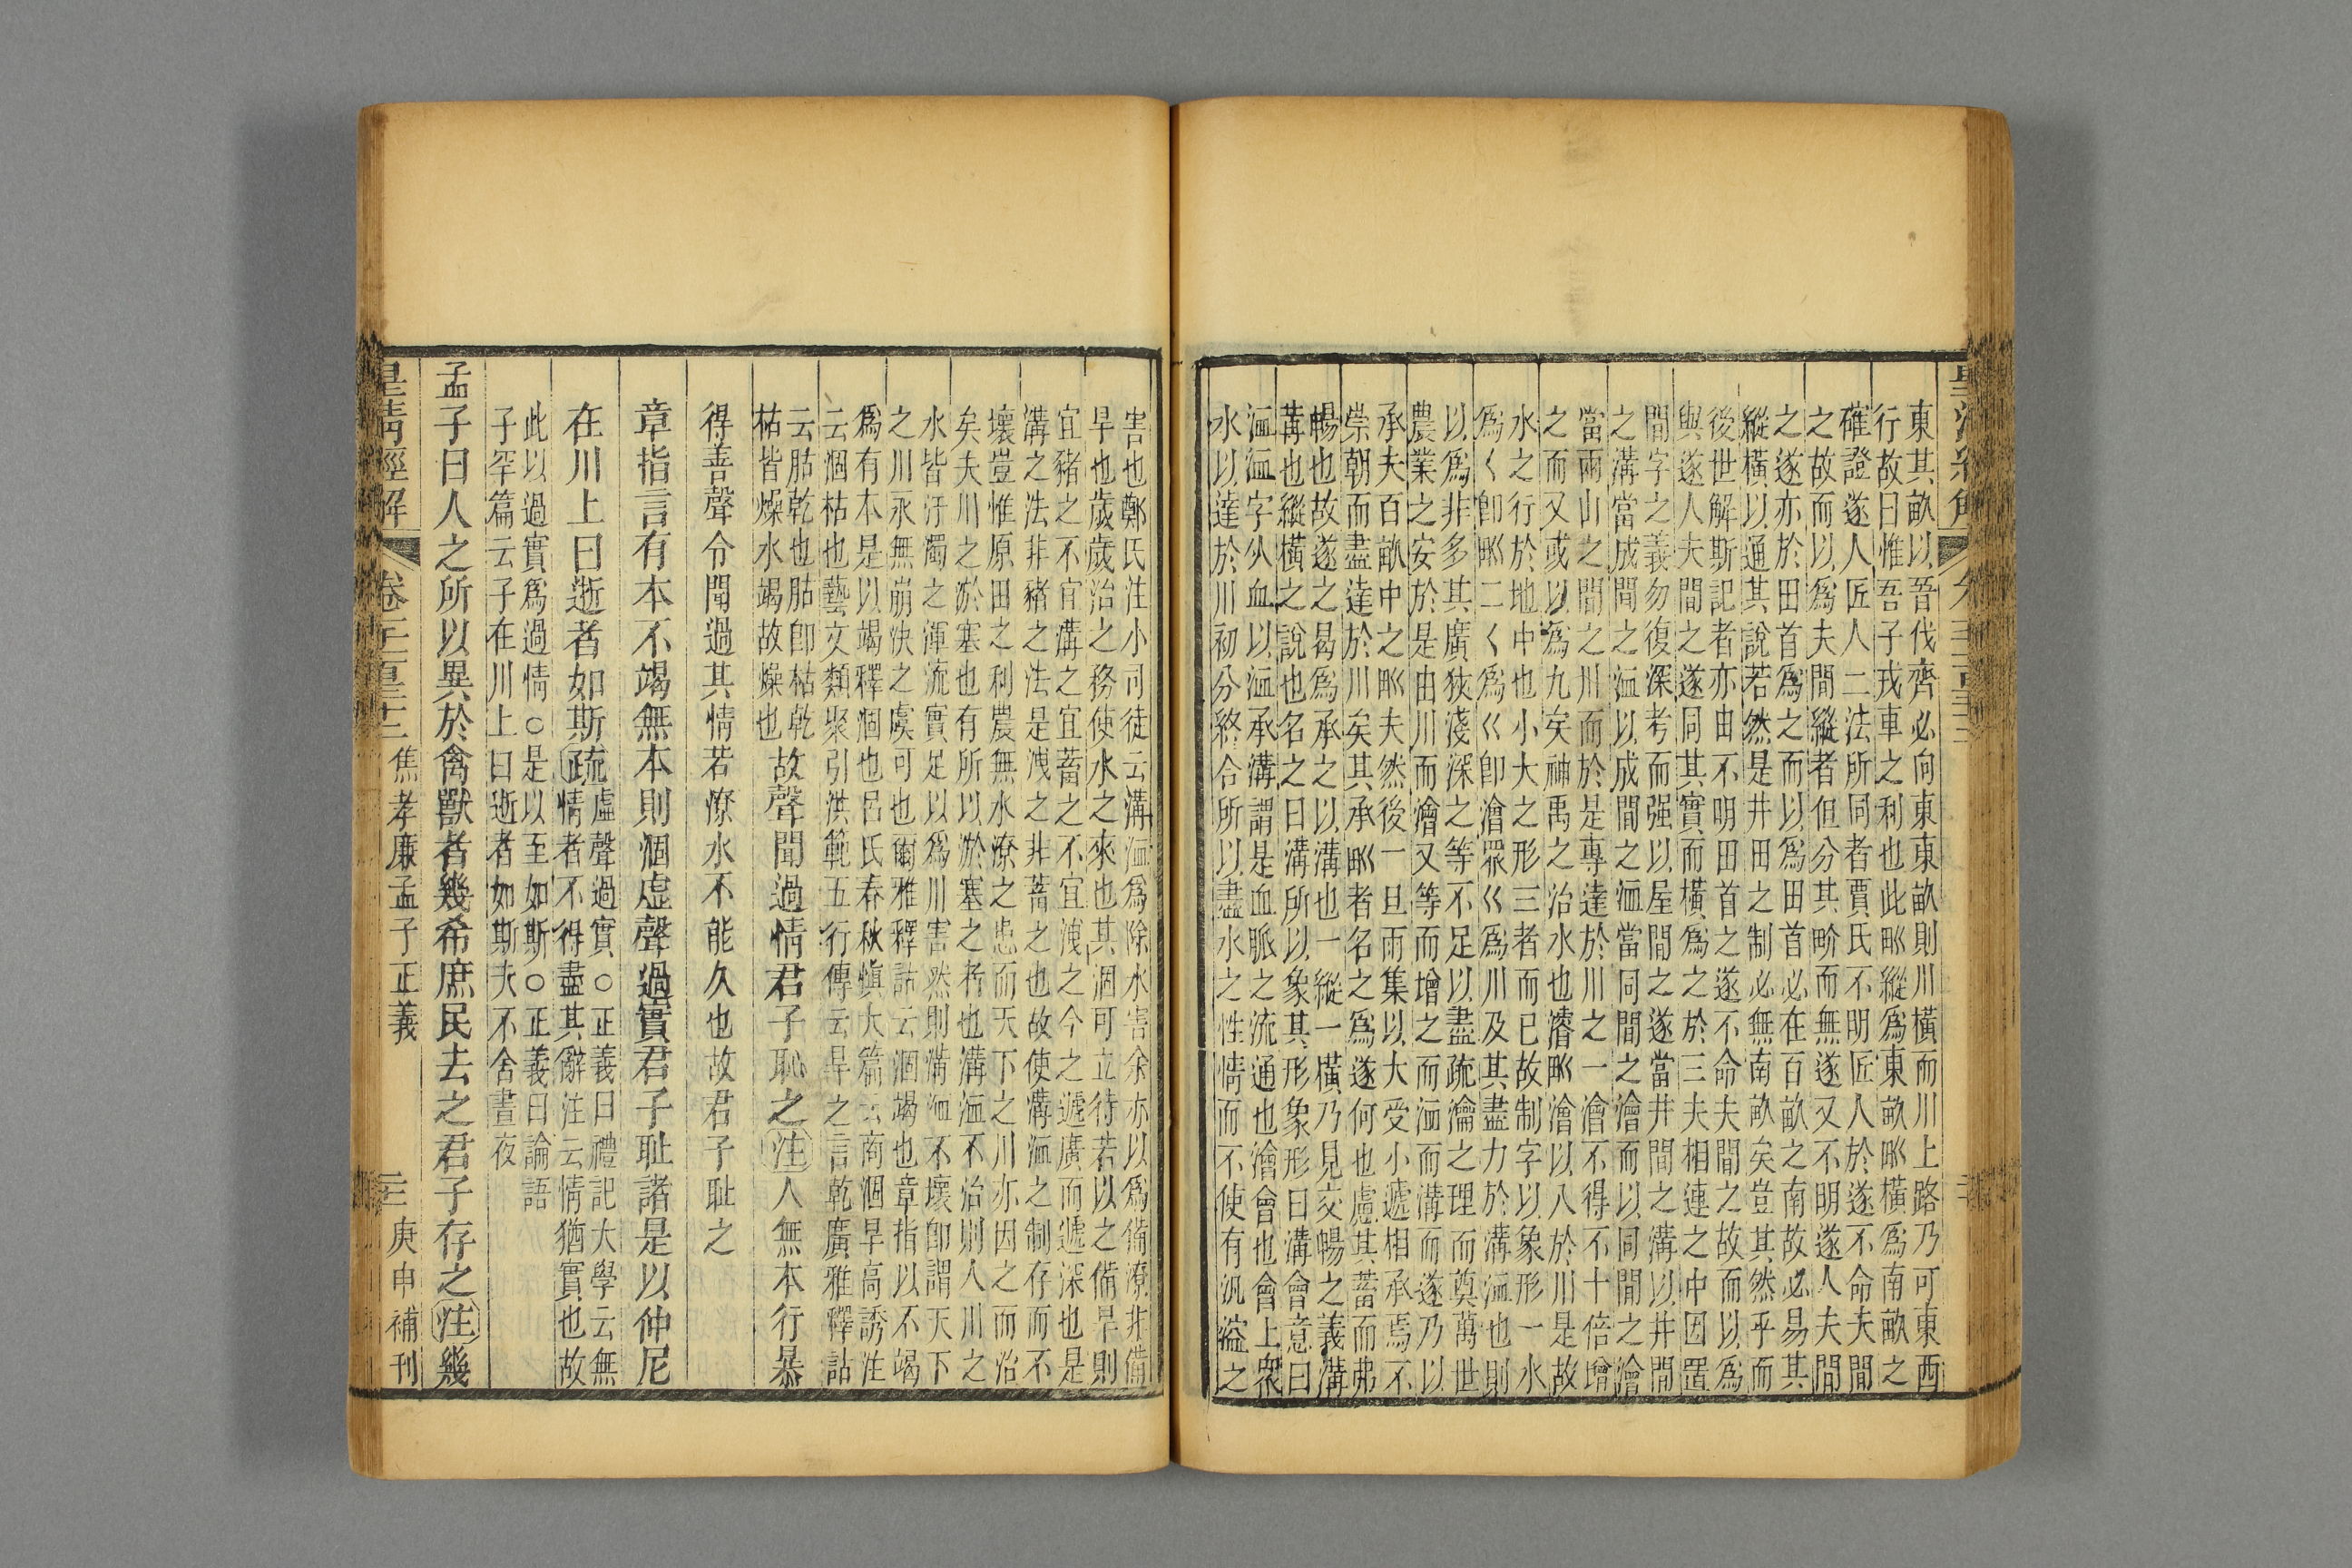 東其畝以晉伐齊必向東東畝則川橫而川上路乃可東西
行故曰惟吾子戎車之利也此𤰝縱爲東畝𤰝橫爲南畝之
確證遂人匠人二法所同者賈氏不明匠人於遂不命夫間
之故而以爲夫間縱者但分其畍而無遂又不明遂人夫間
之遂亦於田首爲之而以爲田首必在百畝之南故必易其
縱橫以通其說若然是井田之制必無南畝矣豈其然乎而
後世解斯記者亦由不明田首之遂不命夫間之故而以爲
與遂人夫間之遂同其實而橫爲之於三夫相連之中因置
間字之義勿復深考而强以屋間之遂當井間之溝以井間
之溝當成間之洫以成間之洫當同間之澮而以同間之澮
當兩山之間之川而於是專達於川之一澮不得不十倍增
之而又或以爲九矣神禹之治水也濬𤰝澮以入於川是故
水之行於地中也小大之形三者而已故制字以象形一水
爲𡿨卽𤰝二𡿨爲巜卽澮眾巜爲川及其盡力於溝洫也則
以爲非多其廣狹淺深之等不足以盡疏瀹之理而奠萬世
農業之安於是由川而澮又等而增之而洫而溝而遂乃以
承夫百畝中之𤰝夫然後一旦雨集以大受小遞相承焉不
崇朝而盡達於川矣其承𤰝者名之爲遂何也慮其蓄而弗
暢也故遂之曷爲承之以溝也一縱一橫乃見交暢之義溝
冓也縱橫之說也名之曰溝所以象其形象形曰溝會意曰
洫洫字从血以洫承溝謂是血脈之流通也澮會也會上衆
水以達於川初分終合所以盡水之性情而不使有汎溢之
害也鄭氏注小司徒云溝洫爲除水害余亦以爲備潦非備
旱也歲歲治之務使水之來也其涸可立待若以之備旱則
宜豬之不宜溝之宜蓄之不宜洩之今之遞廣而遞深也是
溝之法非豬之法是洩之非蓄之也故使溝洫之制存而不
壞豈惟原田之利農無水潦之患而天下之川亦因之而治
矣夫川之淤塞也有所以淤塞之者也溝洫不治則人川之
水皆汙濁之渾流實足以爲川害然則溝洫不壞卽謂天下
之川永無崩決之虞可也爾雅釋詁云涸竭也章指以不竭
爲有本是以竭釋涸也呂氏春秋愼大篇云商涸旱高誘注
云涸枯也藝文類聚引洪範五行傳云旱之言乾廣雅釋詁
云𦙶乾也𦙶卽枯乾
枯皆燥水竭故燥也
故聲聞過情君子恥之注人無本行暴
得善聲令聞過其情若潦水不能久也故君子恥之
章指言有本不竭無本則涸虛聲過實君子恥諸是以仲尼
在川上曰逝者如斯疏
虛聲過實○正義曰禮記大學云無
情者不得盡其辭注云情猶實也故
此以過實爲過情○是以至如斯○正義曰論語
子罕篇云子在川上曰逝者如斯夫不舍晝夜
孟子曰人之所以異於禽獸者幾希庶民去之君子存之注幾
皇淸經解
焦孝廉孟子正義
庚申補刊